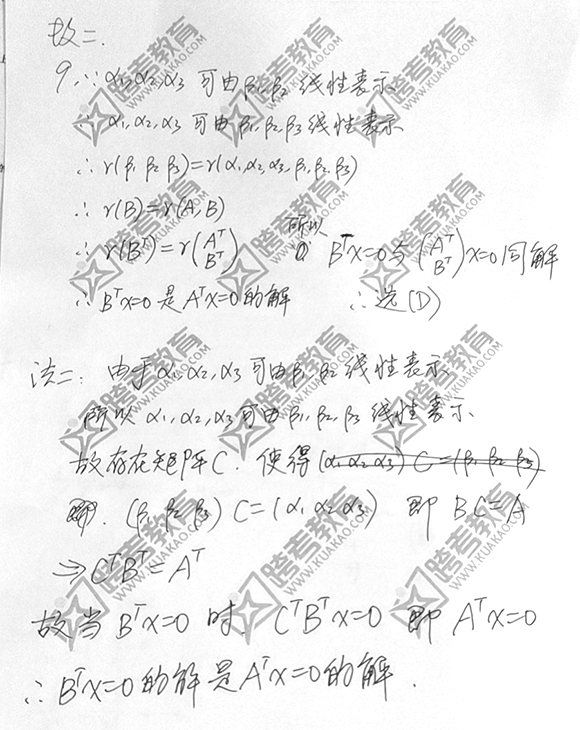 数二.
9. ∵ α₁,α₂,α₃ 可由β₁,β₂ 线性表示
∴ α₁,α₂,α₃ 可由β₁,β₂,β₃ 线性表示
∴ r(β₁ β₂ β₃)=r(α₁,α₂,α₃,β₁,β₂,β₃)
∴ r(B)=r(A,B)
∴ r(Bᵀ)=r(Aᵀ Bᵀ) 所以 Bᵀx=0与(Aᵀ Bᵀ)x=0同解
∴ Bᵀx=0 是Aᵀx=0的解 ∴ 选(D)
法二: 由于α₁,α₂,α₃可由β₁,β₂线性表示
所以 α₁,α₂,α₃可由β₁,β₂,β₃ 线性表示
故存在矩阵C. 使得(α₁ α₂ α₃) C=(β₁ β₂ β₃)
即. (β₁ β₂ β₃) C=(α₁ α₂ α₃) 即 BC=A
⇒ CᵀBᵀ=Aᵀ
故当 Bᵀx=0 时. CᵀBᵀx=0 即 Aᵀx=0
∴ Bᵀx=0的解是Aᵀx=0的解.
跨考教育
WWW.KUAKAO.COM